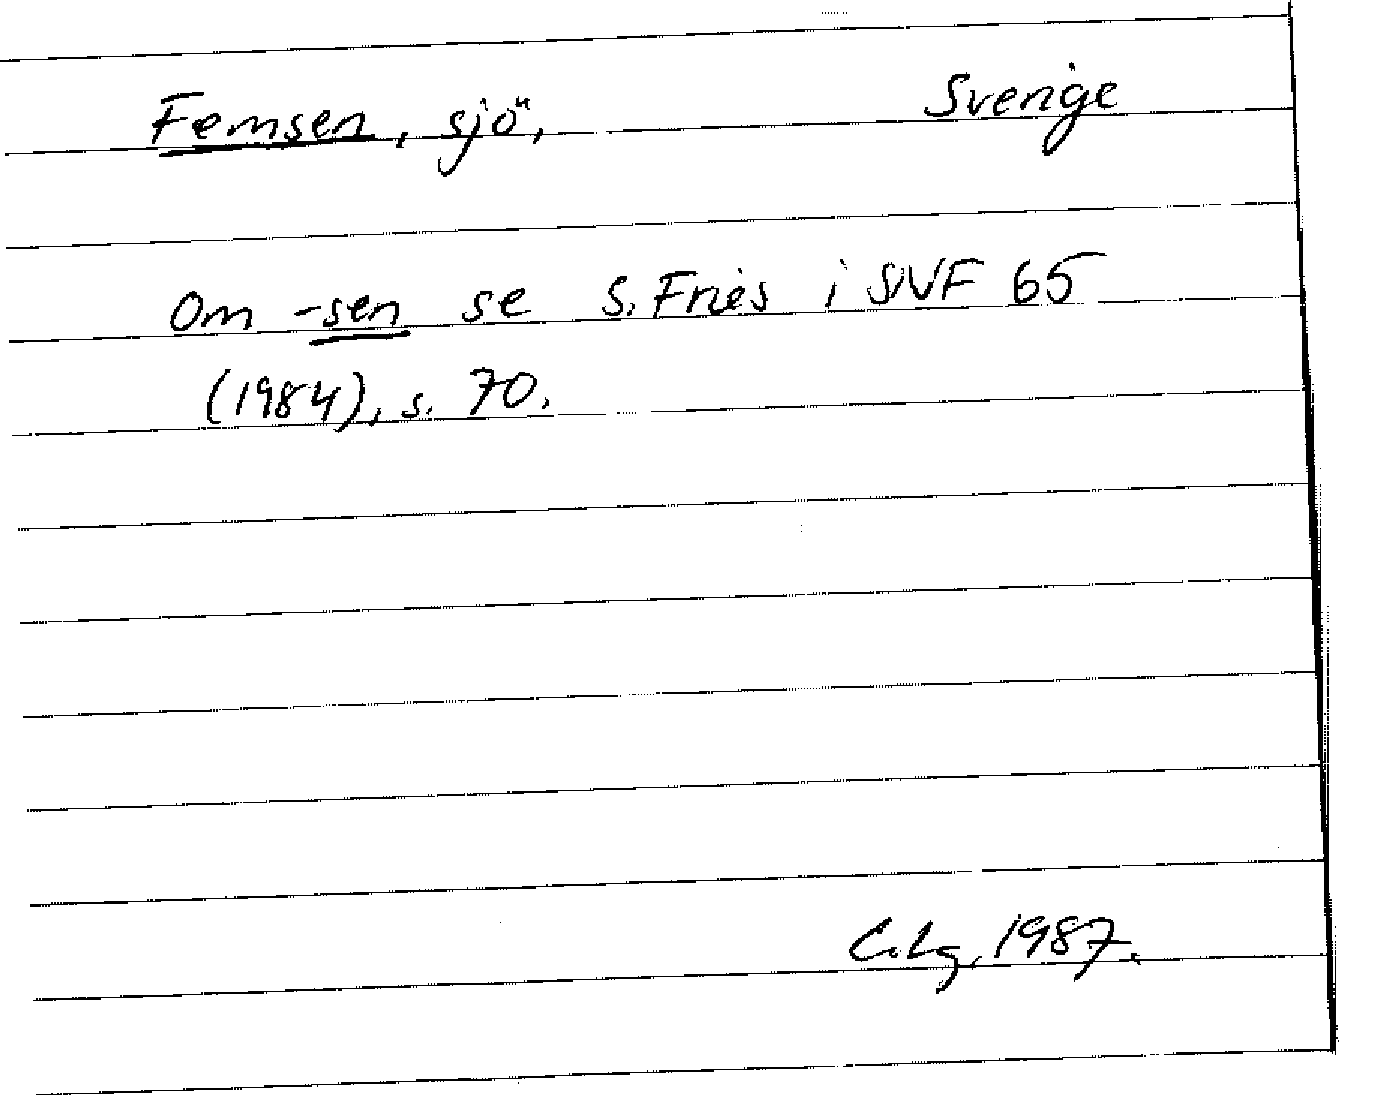 Femsen, sjö, Sverige
Om -sen se S. Fries i SVF 65
(1984), s. 70.
C.Lg. 1987.